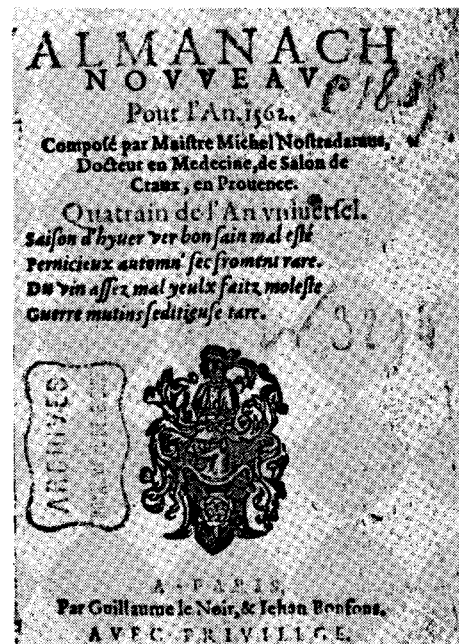 ALMANACH
NOVVEAV
Pour l'An. 1562.
Compoſé par Maiſtre Michel Noſtradamus,
Docteur en Medecine, de Salon de
Craux, en Prouence.
Quatrain de l'An vniuerſel.
Saiſon d'hyuer ver bon ſain mal eſté
Pernicieux automn' ſec froment rare.
Du vin aſſez mal yeulx faitz moleſte
Guerre mutins ſeditieuſe tare.
ARCHIVES
A PARIS,
Par Guillaume le Noir, & Iehan Bonfons,
AVEC PRIVILEGE.